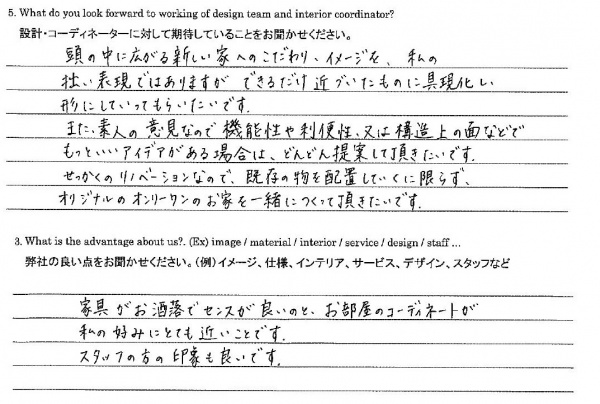 5. What do you look forward to working of design team and interior coordinator?
設計・コーディネーターに対して期待していることをお聞かせください。
頭の中に広がる新しい家へのこだわり、イメージを、私の
拙い表現ではありますが できるだけ近づいたものに具現化し
形にしていってもらいたいです。
また、素人の意見なので機能性や利便性、又は構造上の面などで
もっといいアイデアがある場合は、どんどん提案して頂きたいです。
せっかくのリノベーションなので、既存の物を配置していくに限らず、
オリジナルのオンリーワンのお家を一緒につくって頂きたいです。
3. What is the advantage about us?. (Ex) image / material / interior / service / design / staff ...
弊社の良い点をお聞かせください。(例)イメージ、仕様、インテリア、サービス、デザイン、スタッフなど
家具がお洒落でセンスが良いのと、お部屋のコーディネートが
私の好みにとても近いことです。
スタッフの方の印象も良いです。